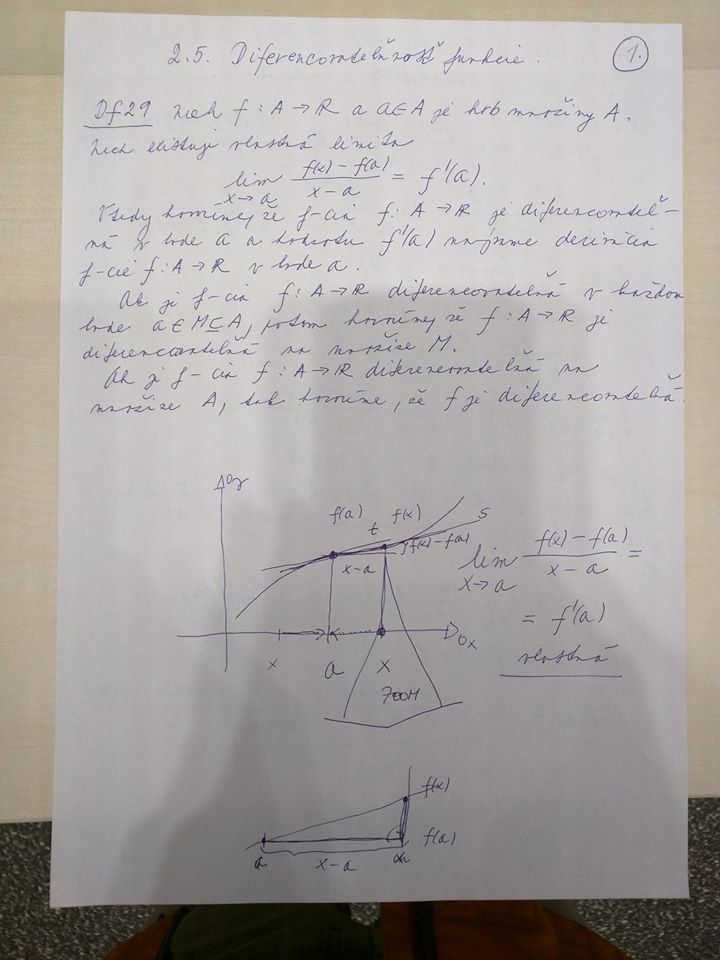 2.5. Diferencovateľnosť funkcie.
1.
Df 29 Nech f : A → R a a ∈ A je hrb množiny A.
Nech existuje vlastná limita
lim x→a (f(x) − f(a))/(x − a) = f'(a).
Vtedy hovoríme, že f-cia f : A → R je diferencovateľ-
ná v bode a a hodnotu f'(a) nazývame derivácia
f-cie f : A → R v bode a.
Ak je f-cia f : A → R diferencovateľná v každom
bode a ∈ M ⊆ A, potom hovoríme, že f : A → R je
diferencovateľná na množine M.
Ak je f-cia f : A → R diferencovateľná na
množine A, tak hovoríme, že f je diferencovateľná.
oy
f(a) t f(x) s
f(x) − f(a)
x − a
ox
x a x
ZOOM
lim x→a (f(x) − f(a))/(x − a) =
= f'(a)
vlastná
f(x)
f(a)
a x − a